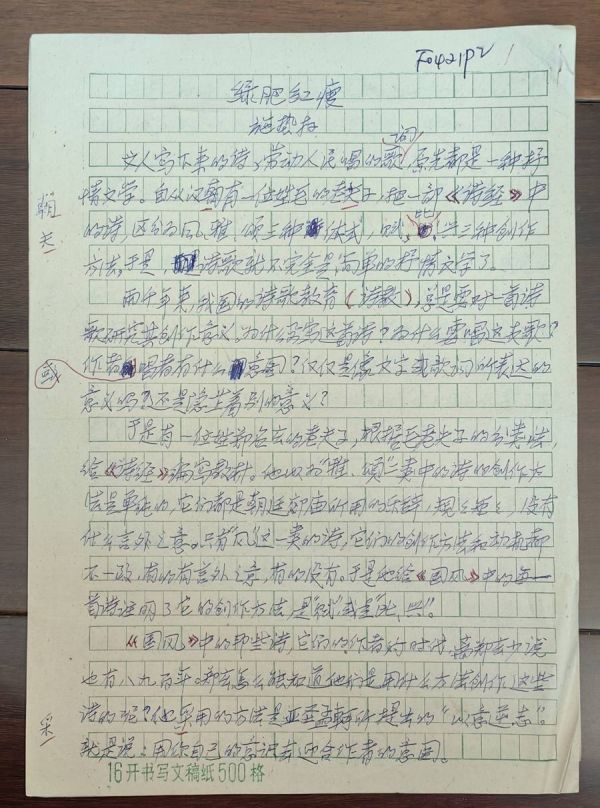 F0421P2
绿肥红瘦
施蛰存
词
文人写下来的诗,劳动人民唱的歌,原先都是一种抒
情文学。自从汉朝有一位姓毛的老夫子,把一部《诗经》中
朝
夫
的诗,区分为风、雅、颂三种体式,赋、比、兴三种创作
方法,于是,诗歌就不完全是简单的抒情文学了。
两千年来,我国的诗歌教育(诗教),总是要对一首诗
歌研究其创作意义。为什么要写这首诗?为什么要唱这支歌?
或
作者唱者有什么意图?仅仅是像文字或歌词所表达的
意义吗?还是隐藏着别的意义?
于是有一位姓郑名玄的老夫子,根据毛老夫子的分类法,
给《诗经》编写教材。他以为“雅、颂”二类中的诗的创作方
法是单纯的,它们都是朝廷郊庙所用的乐辞,规规矩矩,没有
什么言外之意。只有“风”这一类的诗,它们的创作方法和动机都
不一致,有的有言外之意,有的没有。于是他给《国风》中的每一
首诗注明了它的创作方法,是“赋”或是“比、兴”。
《国风》中的那些诗,它们的作者的时代,离郑玄少说
也有八九百年。郑玄怎么能知道他们是用什么方法创作这些
诗的呢?他采用的方法是亚圣孟轲所提出的“以意逆志”。
采
就是说:用你自己的意识去迎合作者的意图。
16开书写文稿纸500格